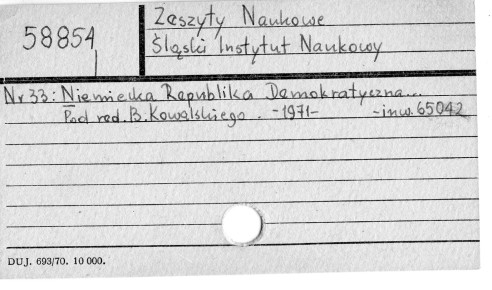 58854
Zeszyty Naukowe
Śląski Instytut Naukowy
Nr 33: Niemiecka Republika Demokratyczna...
Pod red. B. Kowalskiego. -1971- -inw. 65042
DUJ. 693/70. 10 000.